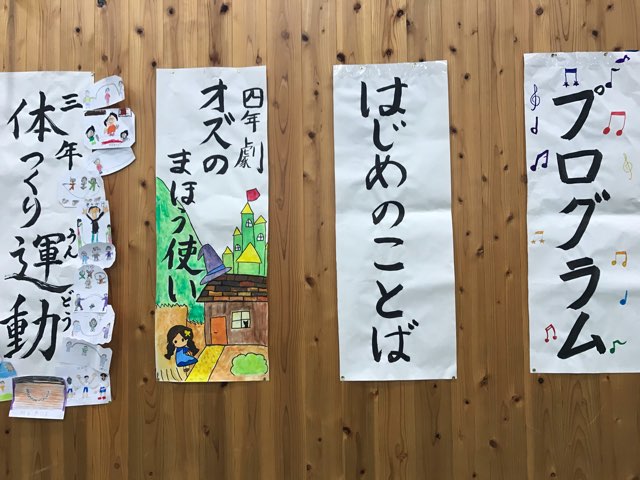 プログラム
はじめのことば
四年 劇
オズの
まほう使い
三年
体つくり運動
うんどう